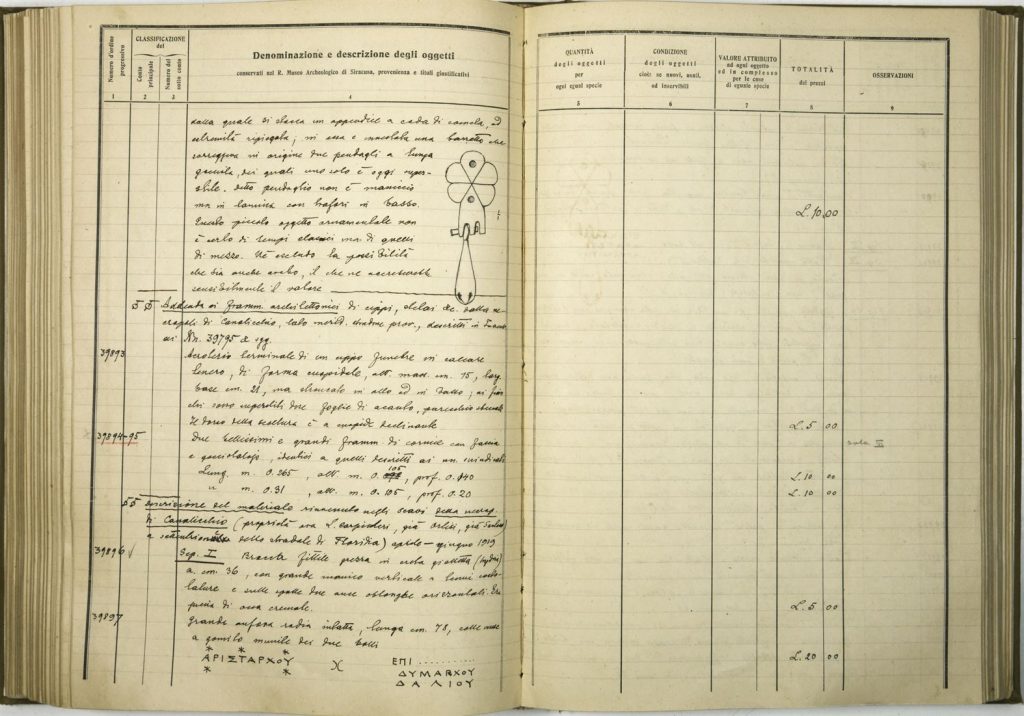 Numero d'ordine progressivo
CLASSIFICAZIONE del
Conto principale
Numero del sotto conto
Denominazione e descrizione degli oggetti
conservati nel R. Museo Archeologico di Siracusa, provenienza e titoli giustificativi
1 2 3 4
dalla quale si stacca un appendice a coda di
estremità ripiegata; in essa è una barretta che
sorreggeva in origine due pendagli a lunga
dei quali uno solo è oggi super-
stite. detto pendaglio non è massiccio
ma in lamina con trafori in basso.
Questo piccolo oggetto ornamentale non
è certo di tempi classici ma di quelli
di mezzo. Nè escludo la possibilità
che sia anche arabo, il che ne accrescerebbe
sensibilmente il valore
§ § Addenda ai framm. architettonici di cippi, stelai &c. dalla ne-
cropoli di Canalicchio, lato merid. stradone prov., descritti in
ai Nn. 39795 & sgg.
39893
Acroterio terminale di un cippo funebre in calcare
tenero, di forma cuspidale, alt. mass. cm. 15, larg.
base cm. 21, ma stroncato in alto ed in basso; ai
sono superstiti due foglie di acanto, parecchio
Il dorso della scultura è a cuspide declinante
39894-95
Due bellissimi e grandi framm. di cornice con fascia
e gocciolatoio, identici a quelli descritti ai nn.
Lung. m. 0.265, alt. m. 0.105, prof. 0.140
" m. 0.31, alt. m. 0.105, prof. 0.20
§ § Descrizione del materiale rinvenuto negli scavi della necrop.
di Canalicchio (proprietà ora S. Carpinteri, già Orlisi, già
a settentrione dello stradale di Floridia) aprile - giugno 1919
39896 √
Sep. I Brocca fittile grezza in creta gialletta (hydria)
a. cm. 36, con grande manico verticale a
e sulle spalle due anse oblunghe orizzontali. Era
piena di ossa cremate.
39897
Grande anfora rodia intatta, lunga cm. 78, colle anse
a gomito munite dei due bolli
ΑΡΙΣΤΑΡΧΟΥ
Χ
ΕΠΙ ..........
ΔΥΜΑΡΧΟΥ
ΔΑΛΙΟΥ
QUANTITÀ degli oggetti per ogni egual specie
CONDIZIONE degli oggetti cioè: se nuovi, usati, od inservibili
VALORE ATTRIBUITO ad ogni oggetto ed in complesso per le cose di eguale specie
TOTALITÀ dei prezzi
OSSERVAZIONI
5 6 7 8 9
L. 10 00
L. 5 00
L. 10 00
L. 10 00
L. 5 00
L. 20 00